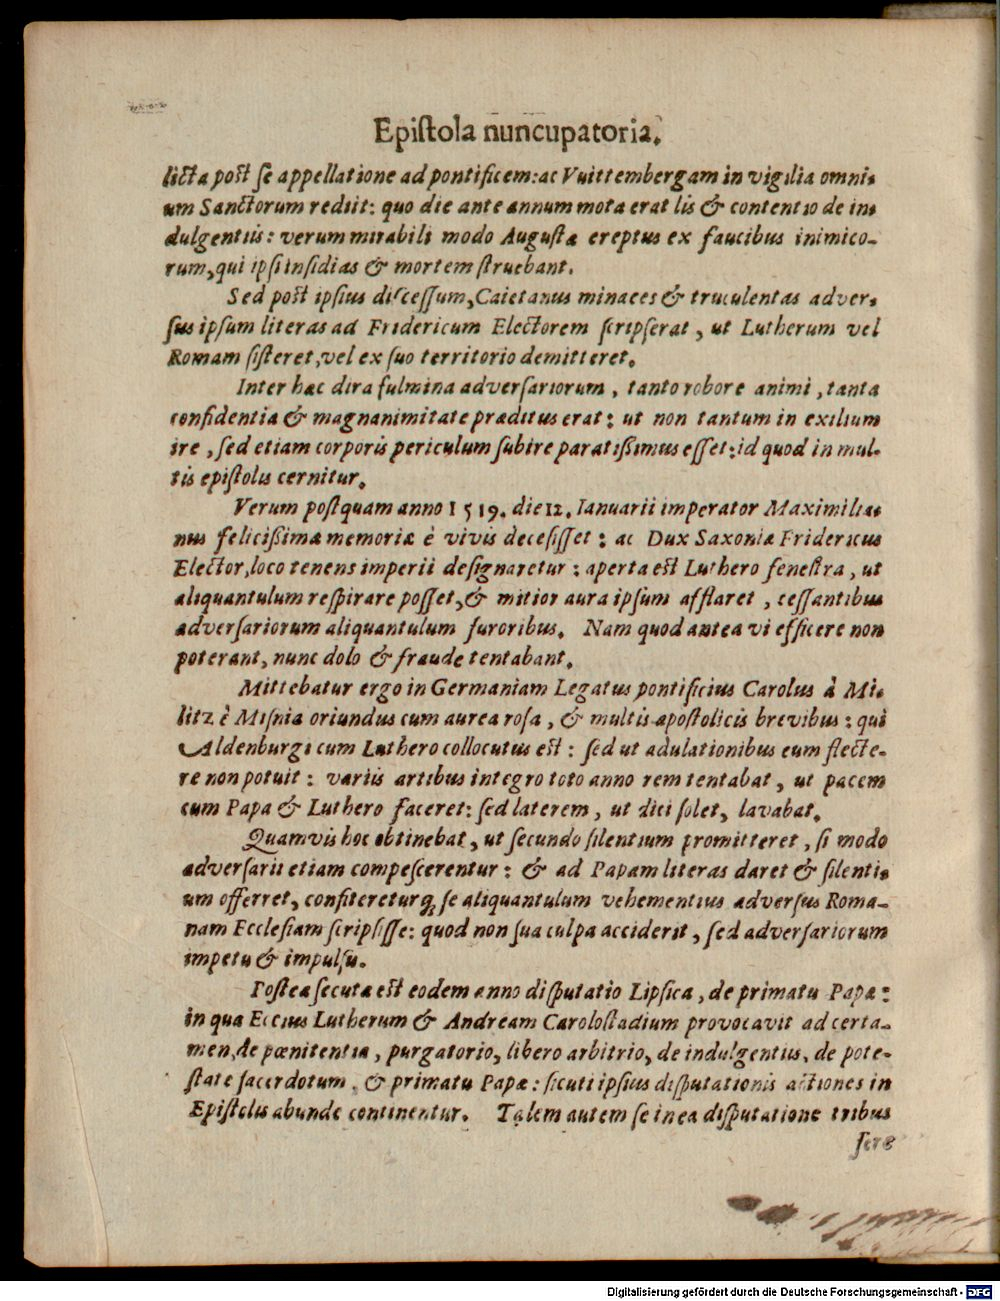 Epistola nuncupatoria.
licta post se appellatione ad pontificem: ac Vuittembergam in vigilia omni-
um Sanctorum rediit: quo die ante annum mota erat lis & contentio de in-
dulgentiis: verum mirabili modo Augustæ ereptus ex faucibus inimico-
rum, qui ipsi insidias & mortem struebant.
Sed post ipsius discessum, Caietanus minaces & truculentas adver-
sus ipsum literas ad Fridericum Electorem scripserat, ut Lutherum vel
Romam sisteret, vel ex suo territorio demitteret.
Inter hæc dira fulmina adversariorum, tanto robore animi, tanta
confidentia & magnanimitate præditus erat: ut non tantum in exilium
ire, sed etiam corporis periculum subire paratißimus esset: id quod in mul-
tis epistolis cernitur.
Verum postquam anno 1519. die 12. Ianuarii imperator Maximilia-
nus felicißimæ memoriæ è vivis decesisset: ac Dux Saxoniæ Fridericus
Elector, loco tenens imperii designaretur: aperta est Luthero fenestra, ut
aliquantulum respirare posset, & mitior aura ipsum afflaret, cessantibus
adversariorum aliquantulum furoribus. Nam quod antea vi efficere non
poterant, nunc dolo & fraude tentabant.
Mittebatur ergo in Germaniam Legatus pontificius Carolus à Mi-
litz è Misnia oriundus cum aurea rosa, & multis apostolicis brevibus: qui
Aldenburgi cum Luthero collocutus est: sed ut adulationibus eum flecte-
re non potuit: variis artibus integro toto anno rem tentabat, ut pacem
cum Papa & Luthero faceret: sed laterem, ut dici solet, lavabat.
Quamvis hoc obtinebat, ut secundo silentium promitteret, si modo
adversarii etiam compescerentur: & ad Papam literas daret & silenti-
um offerret, confitereturq́; se aliquantulum vehementius adversus Roma-
nam Ecclesiam scripsisse: quod non sua culpa acciderit, sed adversariorum
impetu & impulsu.
Postea secuta est eodem anno disputatio Lipsica, de primatu Papæ:
in qua Eccius Lutherum & Andream Carolostadium provocavit ad certa-
men, de pœnitentia, purgatorio, libero arbitrio, de indulgentiis, de pote-
state sacerdotum, & primatu Papæ: sicuti ipsius disputationis actiones in
Epistolis abunde continentur. Talem autem se in ea disputatione tribus
fere
Digitalisierung gefördert durch die Deutsche Forschungsgemeinschaft - DFG